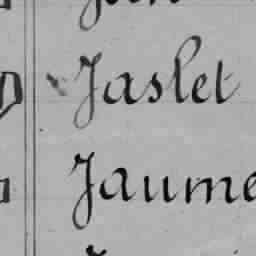 Jaslet
Jaume